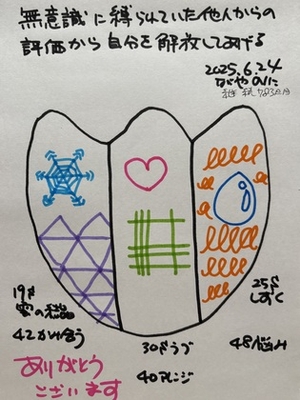 無意識に縛られていた他人からの
評価から自分を解放してあげる
2025.6.24
ながやのりこ
継続783日目
19才
雪の結晶
42かみ合う
30才うブ
40アレンジ
25才
しずく
48悩み
ありがとう
ございます